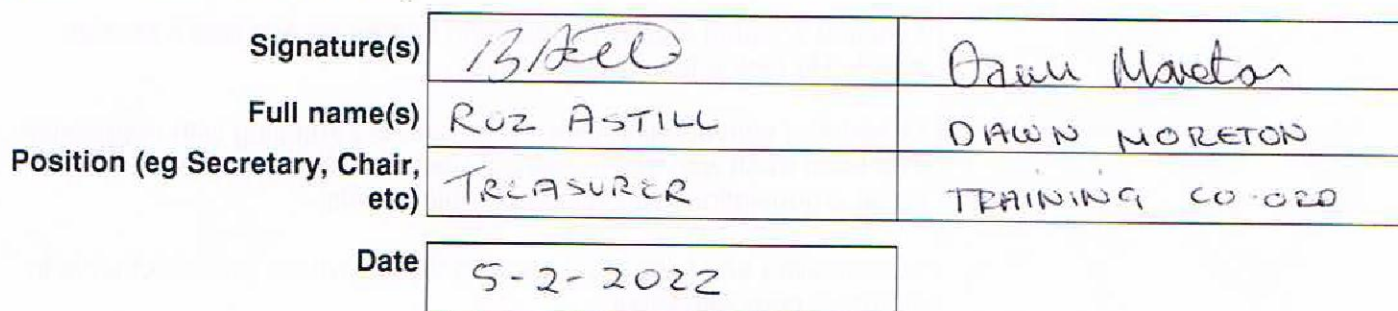 Signature(s) Dawn Moreton
Full name(s) ROZ ASTILL DAWN MORETON
Position (eg Secretary, Chair,
etc) TREASURER TRAINING CO-ORD
Date 5-2-2022